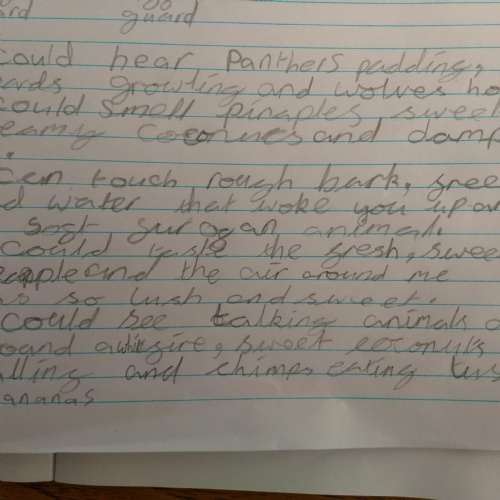 ord guard
could hear panthers padding,
ards growling and wolves ho
could smell pinaples, sweet
eamy coconuts and damp
can touch rough bark, gree
d water that woke you up an
soft, fur ogan animal.
could taste the fresh, swee
eapple and the air around me
as so lush and sweet.
could see talking animals a
ound a white fire, sweet coconuts
alling and chimps eating lus
ananas